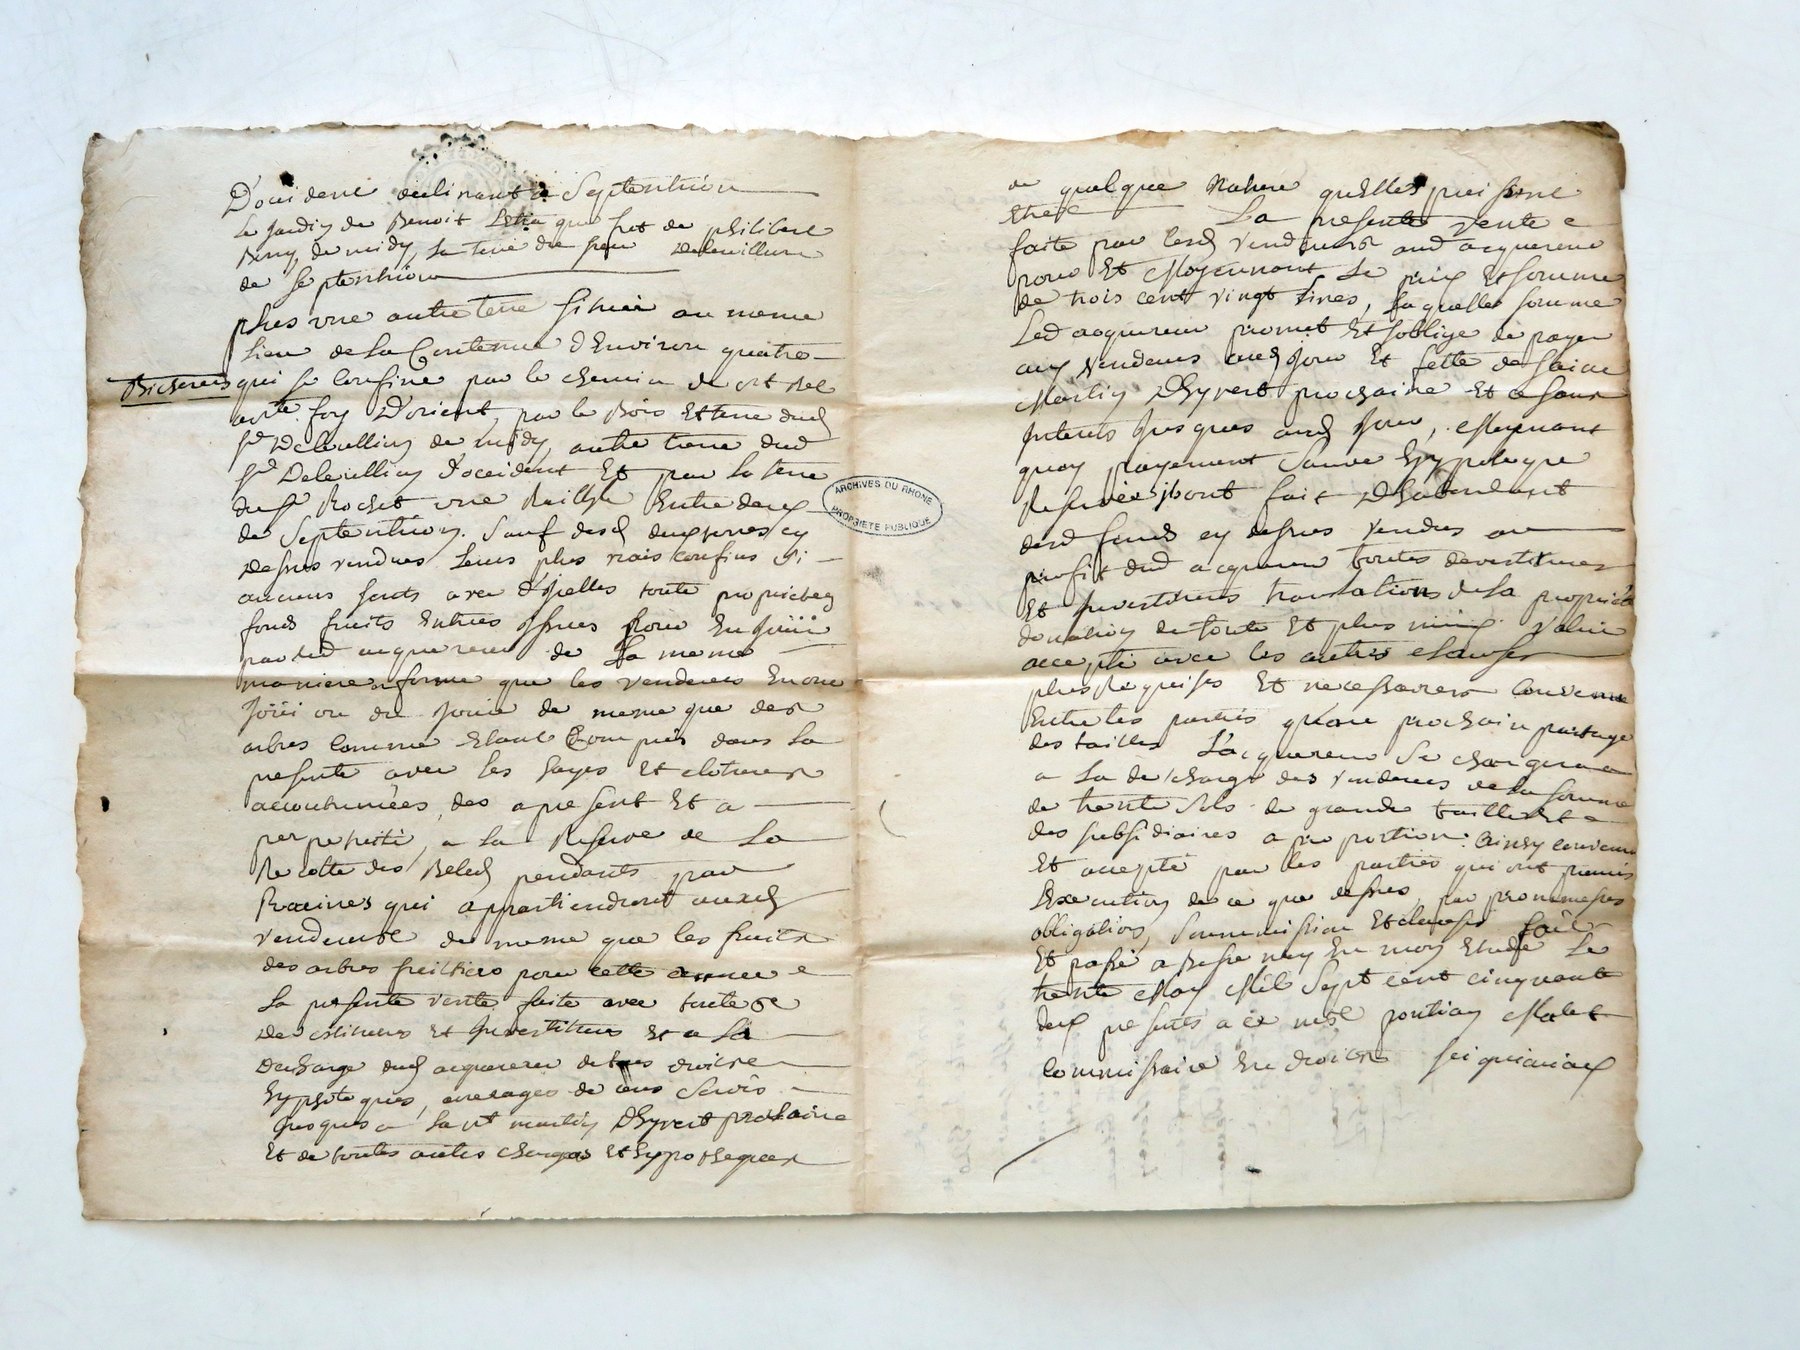 D'occident declinant a Septentrion
Le jardin de Benoit que fut de philibert
de midy, la terre du sieur
de septentrion
plus une autre terre située au meme
lieu de la Contenue d'Environ quatre
Bicherees qui se confine par le chemin de
foy D'orient, par le Bois et terre dud
Sr de midy, autre terre dud
Sr D'occident Et par la terre
dusr Rochet une Entre deux
de Septentrion. Sauf desd deux terres cy
dessus vendues leurs plus vrais confins si
aucuns sont avec d'ycelles toute propriétés
fonds fruits Entrées yssues pour En joüir
parled acquereur de La meme
maniere et forme que les vendeurs En ont
joüi ou du joüir de meme que des
arbres comme Etant Compris dans la
presente avec les hayes Et clotures
accoutumées, des a present Et a
perpetuité, a la Reserve de La
Recolte des Bleds pendants par
Racines qui appartiendront auxd
vendeurs de meme que les fruits
des arbres fruitiers pour cette année
La presente vente faite avec toutes
Devestitures Et Investitures Et a La
Decharge dud acquereur de tous droits
hypoteques, arrerages de cens servis
jusques a la st martin D'hyvert prochaine
Et de toutes autres charges Et hypotheques
de quelque Nature quelles puissent
Etre La presente vente e
faite par lesd vendeurs aud acquereur
pour Et Moyennant Le prix Et somme
de trois cent vingt livres, laquelle somme
Led acquereur promet Et soblige de payer
aux vendeurs aud jour Et fette de saint
Martin D'hyvert prochaine Et a sans
Interets jusques aud jour, Moyennant
quoy payement sauve hyppoteque
Reservée, ils ont fait D'habondant
desd fonds cy dessus vendus au
profit dud acquereur toutes devestitures
Et Investitures translations de la proprieté
donation de toute Et plus value
accepté avec les autres clauses
plus Requises Et necessaires Convenu
Entre les parties quau prochain partage
des tailles L'acquereur se chargera
a La decharge des vendeurs de la somme
de trente sols de grande taille Et
des subsidiaires a proportion: ainsy convenu
Et accepté par les parties qui ont promis
Execution de ce que dessus, par promesses
obligations, soummission Et clauses fait
Et passé a Bessenay En mon Etude Le
trente May Mil Sept cent cinquant
deux presents a ce me pontian Malet
Commissaire En droits
ARCHIVES DU RHONE
PROPRIETE PUBLIQUE